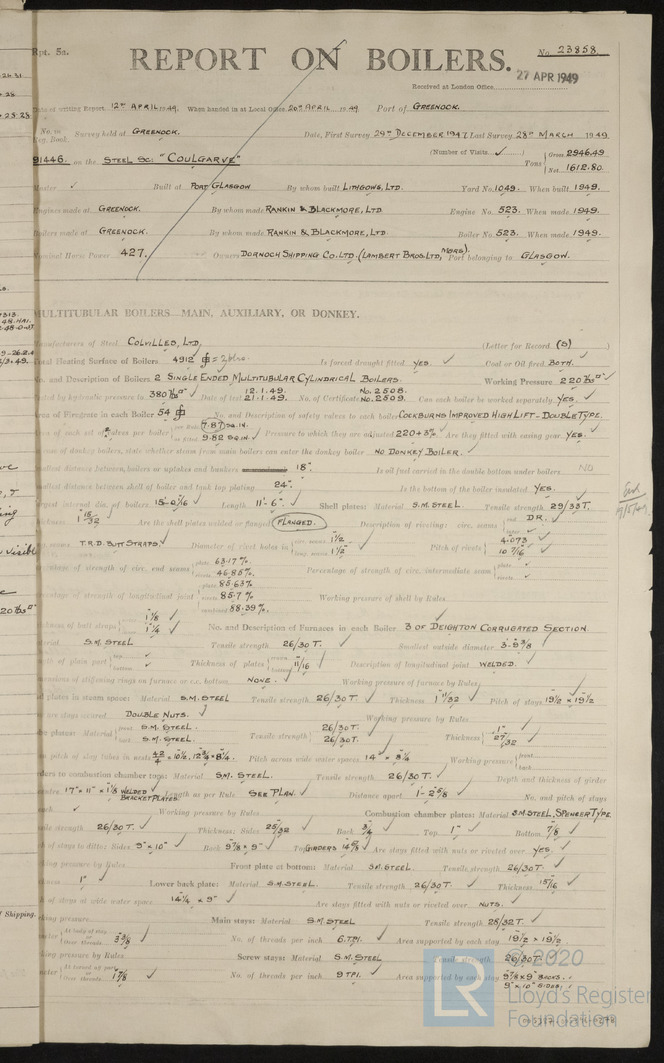 Rpt. 5a.
REPORT ON BOILERS.
No. 23858
27 APR 1949
Received at London Office
Date of writing Report 12TH APRIL 1949. When handed in at Local Office 20TH APRIL 1949. Port of GREENOCK.
No. in Reg. Book. Survey held at GREENOCK. Date, First Survey 29TH DECEMBER 1947. Last Survey 28TH MARCH 1949.
(Number of Visits ✓)
91446. on the STEEL SC: "COULGARVE" Tons Gross 2946.49 Net 1612.80
Master ✓ Built at PORT GLASGOW By whom built LITHGOWS, LTD. Yard No. 1049. When built 1949.
Engines made at GREENOCK. By whom made RANKIN & BLACKMORE, LTD. Engine No. 523. When made 1949.
Boilers made at GREENOCK. By whom made RANKIN & BLACKMORE, LTD. Boiler No. 523. When made 1949.
Nominal Horse Power 427. Owners DORNOCH SHIPPING CO. LTD. (LAMBERT BROS. LTD, MGRS). Port belonging to GLASGOW.
MULTITUBULAR BOILERS—MAIN, AUXILIARY, OR DONKEY.
Manufacturers of Steel COLVILLES, LTD. (Letter for Record (S) )
Total Heating Surface of Boilers 4912 Is forced draught fitted YES. ✓ Coal or Oil fired BOTH. ✓
No. and Description of Boilers 2 SINGLE ENDED MULTITUBULAR CYLINDRICAL BOILERS. Working Pressure 220 lbs/□" ✓
Tested by hydraulic pressure to 380 lbs/□" ✓ Date of test 12.1.49. 21.1.49. No. of Certificate No. 2508. No. 2509. Can each boiler be worked separately YES. ✓
Area of Firegrate in each Boiler 54 No. and Description of safety valves to each boiler COCKBURNS IMPROVED HIGH LIFT - DOUBLE TYPE.
Area of each set of valves per boiler 7.87 SQ.IN. as fitted 9.82 SQ.IN. Pressure to which they are adjusted 220+3% ✓ Are they fitted with easing gear YES. ✓
In case of donkey boilers, state whether steam from main boilers can enter the donkey boiler NO DONKEY BOILER.
Smallest distance between boilers or uptakes and bunkers 18". Is oil fuel carried in the double bottom under boilers NO
Smallest distance between shell of boiler and tank top plating 24". Is the bottom of the boiler insulated YES.
Largest internal dia. of boilers Length 11'-6". Shell plates: Material S.M. STEEL Tensile strength 29/33T.
Thickness 1 15/32 Are the shell plates welded or flanged FLANGED. Description of riveting: circ. seams end DR.
long. seams T.R.D. BUTT STRAPS. Diameter of rivet holes in circ. seams 1½ long. seams 1½ Pitch of rivets 4.073 10 7/16
Percentage of strength of circ. end seams plate 63.17% rivets 46.85% Percentage of strength of circ. intermediate seam plate rivets
Percentage of strength of longitudinal joint plate 85.63% rivets 85.7% combined 88.39% Working pressure of shell by Rules
Thickness of butt straps 1⅛ 1¼ No. and Description of Furnaces in each Boiler 3 OF DEIGHTON CORRUGATED SECTION
Material S.M. STEEL Tensile strength 26/30 T. Smallest outside diameter 3'-9⅜
Length of plain part top bottom Thickness of plates crown bottom 11/16 Description of longitudinal joint WELDED.
Dimensions of stiffening rings on furnace or c.c. bottom NONE. Working pressure of furnace by Rules
End plates in steam space: Material S.M. STEEL Tensile strength 26/30 T. Thickness 1 11/32 Pitch of stays 19½ × 19½
How are stays secured DOUBLE NUTS. Working pressure by Rules
Tube plates: Material front S.M. STEEL. back S.M. STEEL. Tensile strength 26/30T. 26/30T. Thickness 1" 27/32
Mean pitch of stay tubes in nests Pitch across wide water spaces 14" × 8¼ Working pressure front back
Girders to combustion chamber tops: Material S.M. STEEL. Tensile strength 26/30 T. Depth and thickness of girder
at centre 17" × 11" × 1⅛ WELDED BRACKET PLATES Length as per Rule SEE PLAN. Distance apart 1'-2⅝ No. and pitch of stays
in each Working pressure by Rules Combustion chamber plates: Material S.M. STEEL, SPENCER TYPE
Tensile strength 26/30 T. Thickness: Sides 25/32 Back ¾ Top 1" Bottom ⅞
Pitch of stays to ditto: Sides 9" × 10" Back 9⅞ × 9" Top GIRDERS 14⅝ Are stays fitted with nuts or riveted over YES.
Working pressure by Rules Front plate at bottom: Material S.M. STEEL Tensile strength 26/30T.
Thickness 1" Lower back plate: Material S.M. STEEL. Tensile strength 26/30 T. Thickness 15/16
Pitch of stays at wide water space 14¼ × 9" Are stays fitted with nuts or riveted over NUTS.
Working pressure Main stays: Material S.M. STEEL Tensile strength 28/32 T.
Diameter At body of stay or Over threads 3⅜ No. of threads per inch 6.T.P.I. Area supported by each stay 19½ × 19½
Working pressure by Rules Screw stays: Material S.M STEEL Tensile strength 26/30T.
Diameter At turned off part or Over threads 1⅞ No. of threads per inch 9 TPI. Area supported by each stay 9⅞ × 9" BACKS. 9" × 10" SIDES.
© 2020
LR
Lloyd's Register
Foundation